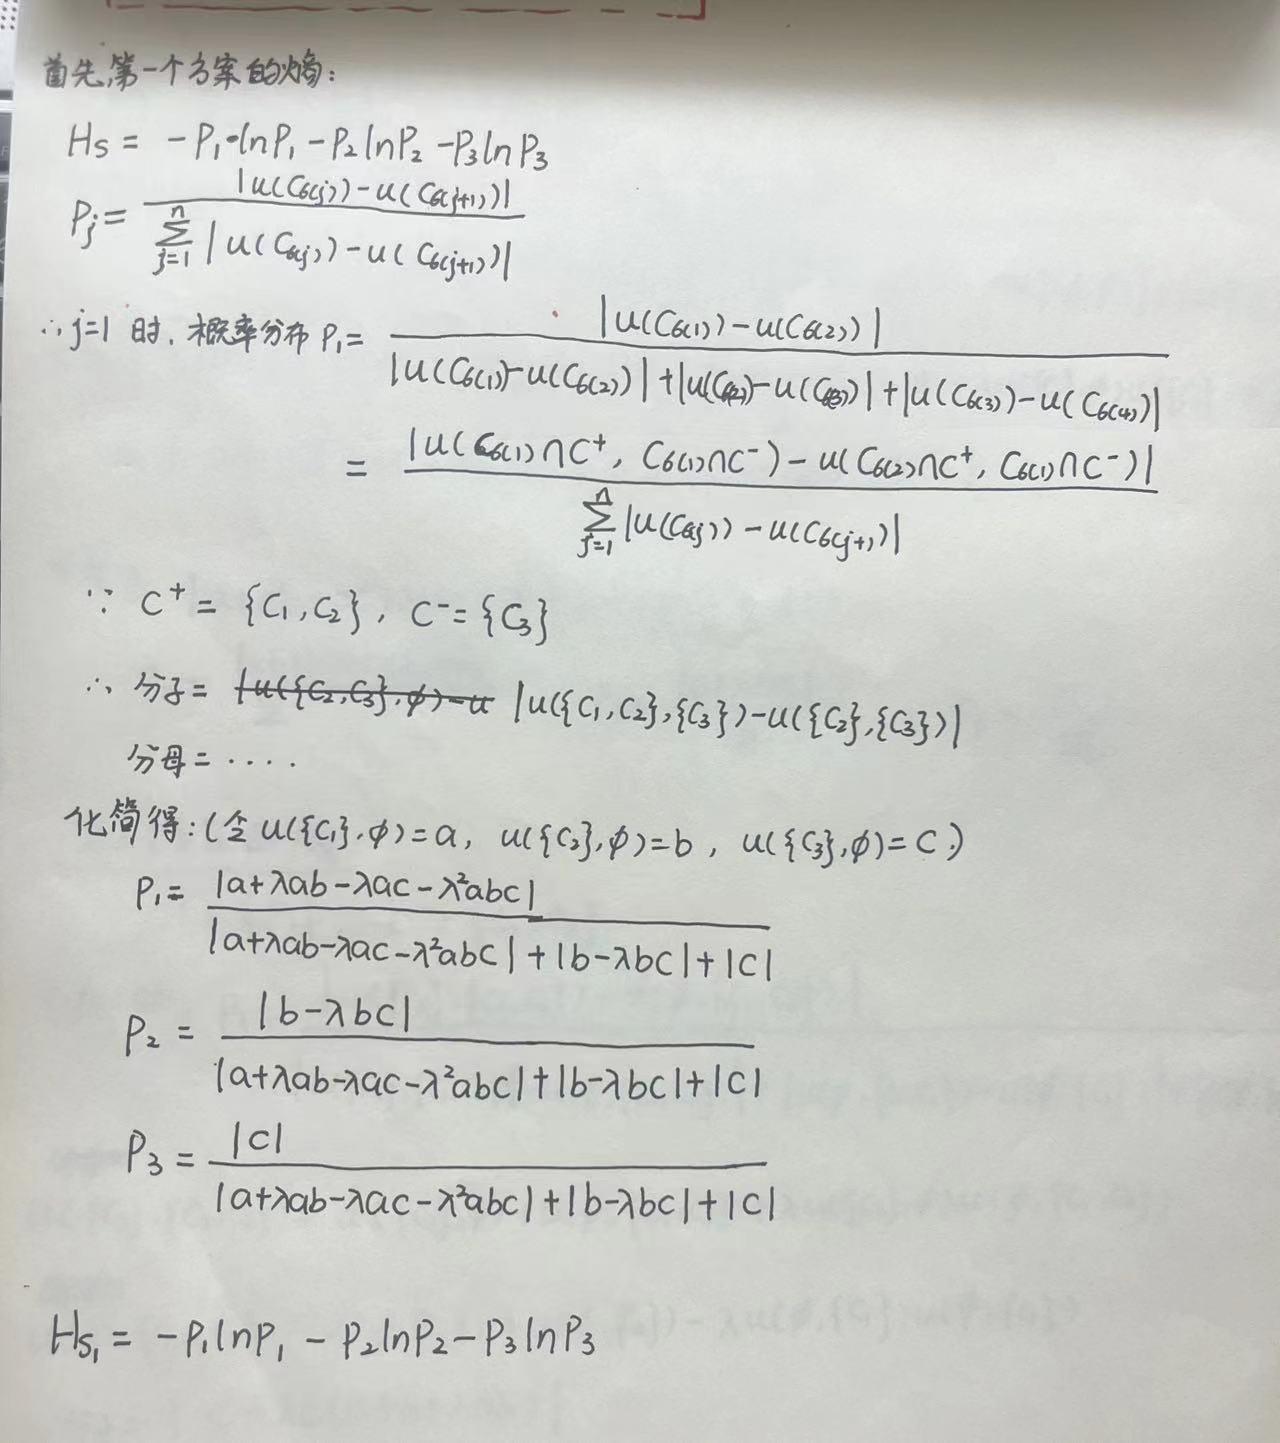 首先,第一个方案的熵:
Hs = -P₁·lnP₁ - P₂lnP₂ - P₃lnP₃
Pⱼ = |u(C₆₍ⱼ₎) - u(C₆₍ⱼ₊₁₎)| / ∑ⱼ₌₁ⁿ |u(C₆₍ⱼ₎) - u(C₆₍ⱼ₊₁₎)|
∴ j=1 时, 概率分布 P₁= |u(C₆₍₁₎) - u(C₆₍₂₎)| / |u(C₆₍₁₎)-u(C₆₍₂₎)| + |u(C₆₍₂₎)-u(C₆₍₃₎)| + |u(C₆₍₃₎)-u(C₆₍₄₎)|
= |u(C₆₍₁₎∩C⁺, C₆₍₁₎∩C⁻) - u(C₆₍₂₎∩C⁺, C₆₍₁₎∩C⁻)| / ∑ⱼ₌₁ⁿ |u(C₆₍ⱼ₎) - u(C₆₍ⱼ₊₁₎)|
∵ C⁺ = {C₁,C₂}, C⁻={C₃}
∴ 分子= |u({C₂,C₃},φ)-u |u({C₁,C₂},{C₃})-u({C₂},{C₃})|
分母= ····
化简得:(令 u({C₁},φ)=a, u({C₂},φ)=b, u({C₃},φ)=c.)
P₁= |a+λab-λac-λ²abc| / |a+λab-λac-λ²abc|+|b-λbc|+|c|
P₂ = |b-λbc| / |a+λab-λac-λ²abc|+|b-λbc|+|c|
P₃ = |c| / |a+λab-λac-λ²abc|+|b-λbc|+|c|
Hs₁ = -P₁lnP₁ - P₂lnP₂-P₃lnP₃